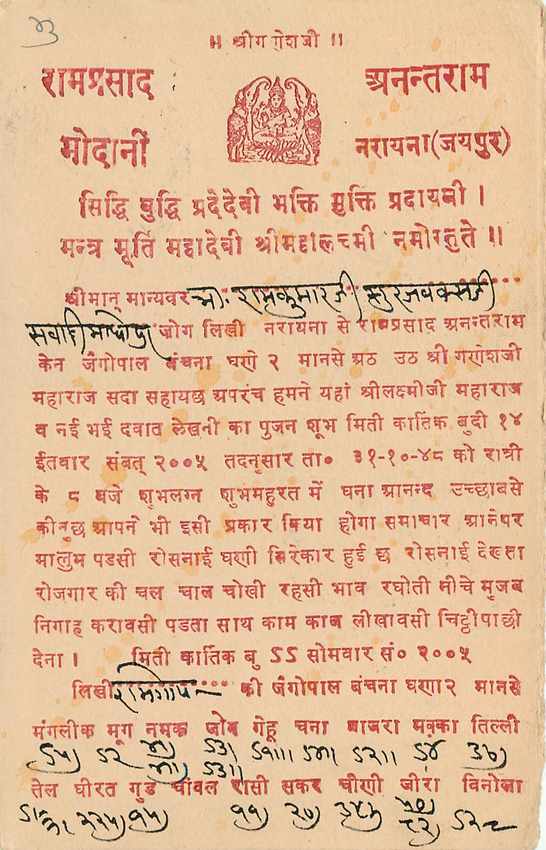 ॥ श्रीगणेशजी ॥
रामप्रसाद अनन्तराम
मोदानी नरायना(जयपुर)
सिद्धि बुद्धि प्रदेदेवी भक्ति मुक्ति प्रदायनी ।
मन्त्र मूर्ति महादेवी श्रीमहालक्ष्मी नमोस्तुते ॥
श्रीमान् मान्यवर रामकुमारजी सुरजबक्सजी
सवाई माधोपुर जोग लिखी नरायना से रामप्रसाद अनन्तराम
केन जंगोपाल बंचना घणे २ मानसे अठ उठ श्री गणेशजी
महाराज सदा सहायछ अपरंच हमने यहां श्रीलक्ष्मीजी महाराज
व नई भई दवात लेखनी का पुजन शूभ मिती कार्तिक बुदी १४
ईतवार संबत् २००५ तदनुसार ता० ३१-१०-४८ को रात्री
के ८ बजे शुभलग्न शुभमहुरत में घना आनन्द उच्छाबसे
कीनुछ आपने भी इसी प्रकार किया होगा समाचार आनेपर
मालुम पडसी रोसनाई घणी सिरेकार हुई छ रोसनाई देखता
रोजगार की चल चाल चोखी रहसी भाव रघोती नीचे मुजब
निगाह करावसी पडता साथ काम काज लीखावसी चिट्ठीपाछी
देना । मिती कार्तिक बु ऽऽ सोमवार सं० २००५
लिखी रामगोपाल की जंगोपाल बंचना घणा२ मानसे
मंगलीक मूग नमक जोब गेहू चना बाजरा मक्का तिल्ली
तेल घीरत गुड चांवल रासी सकर चीणी जीरा विनोला